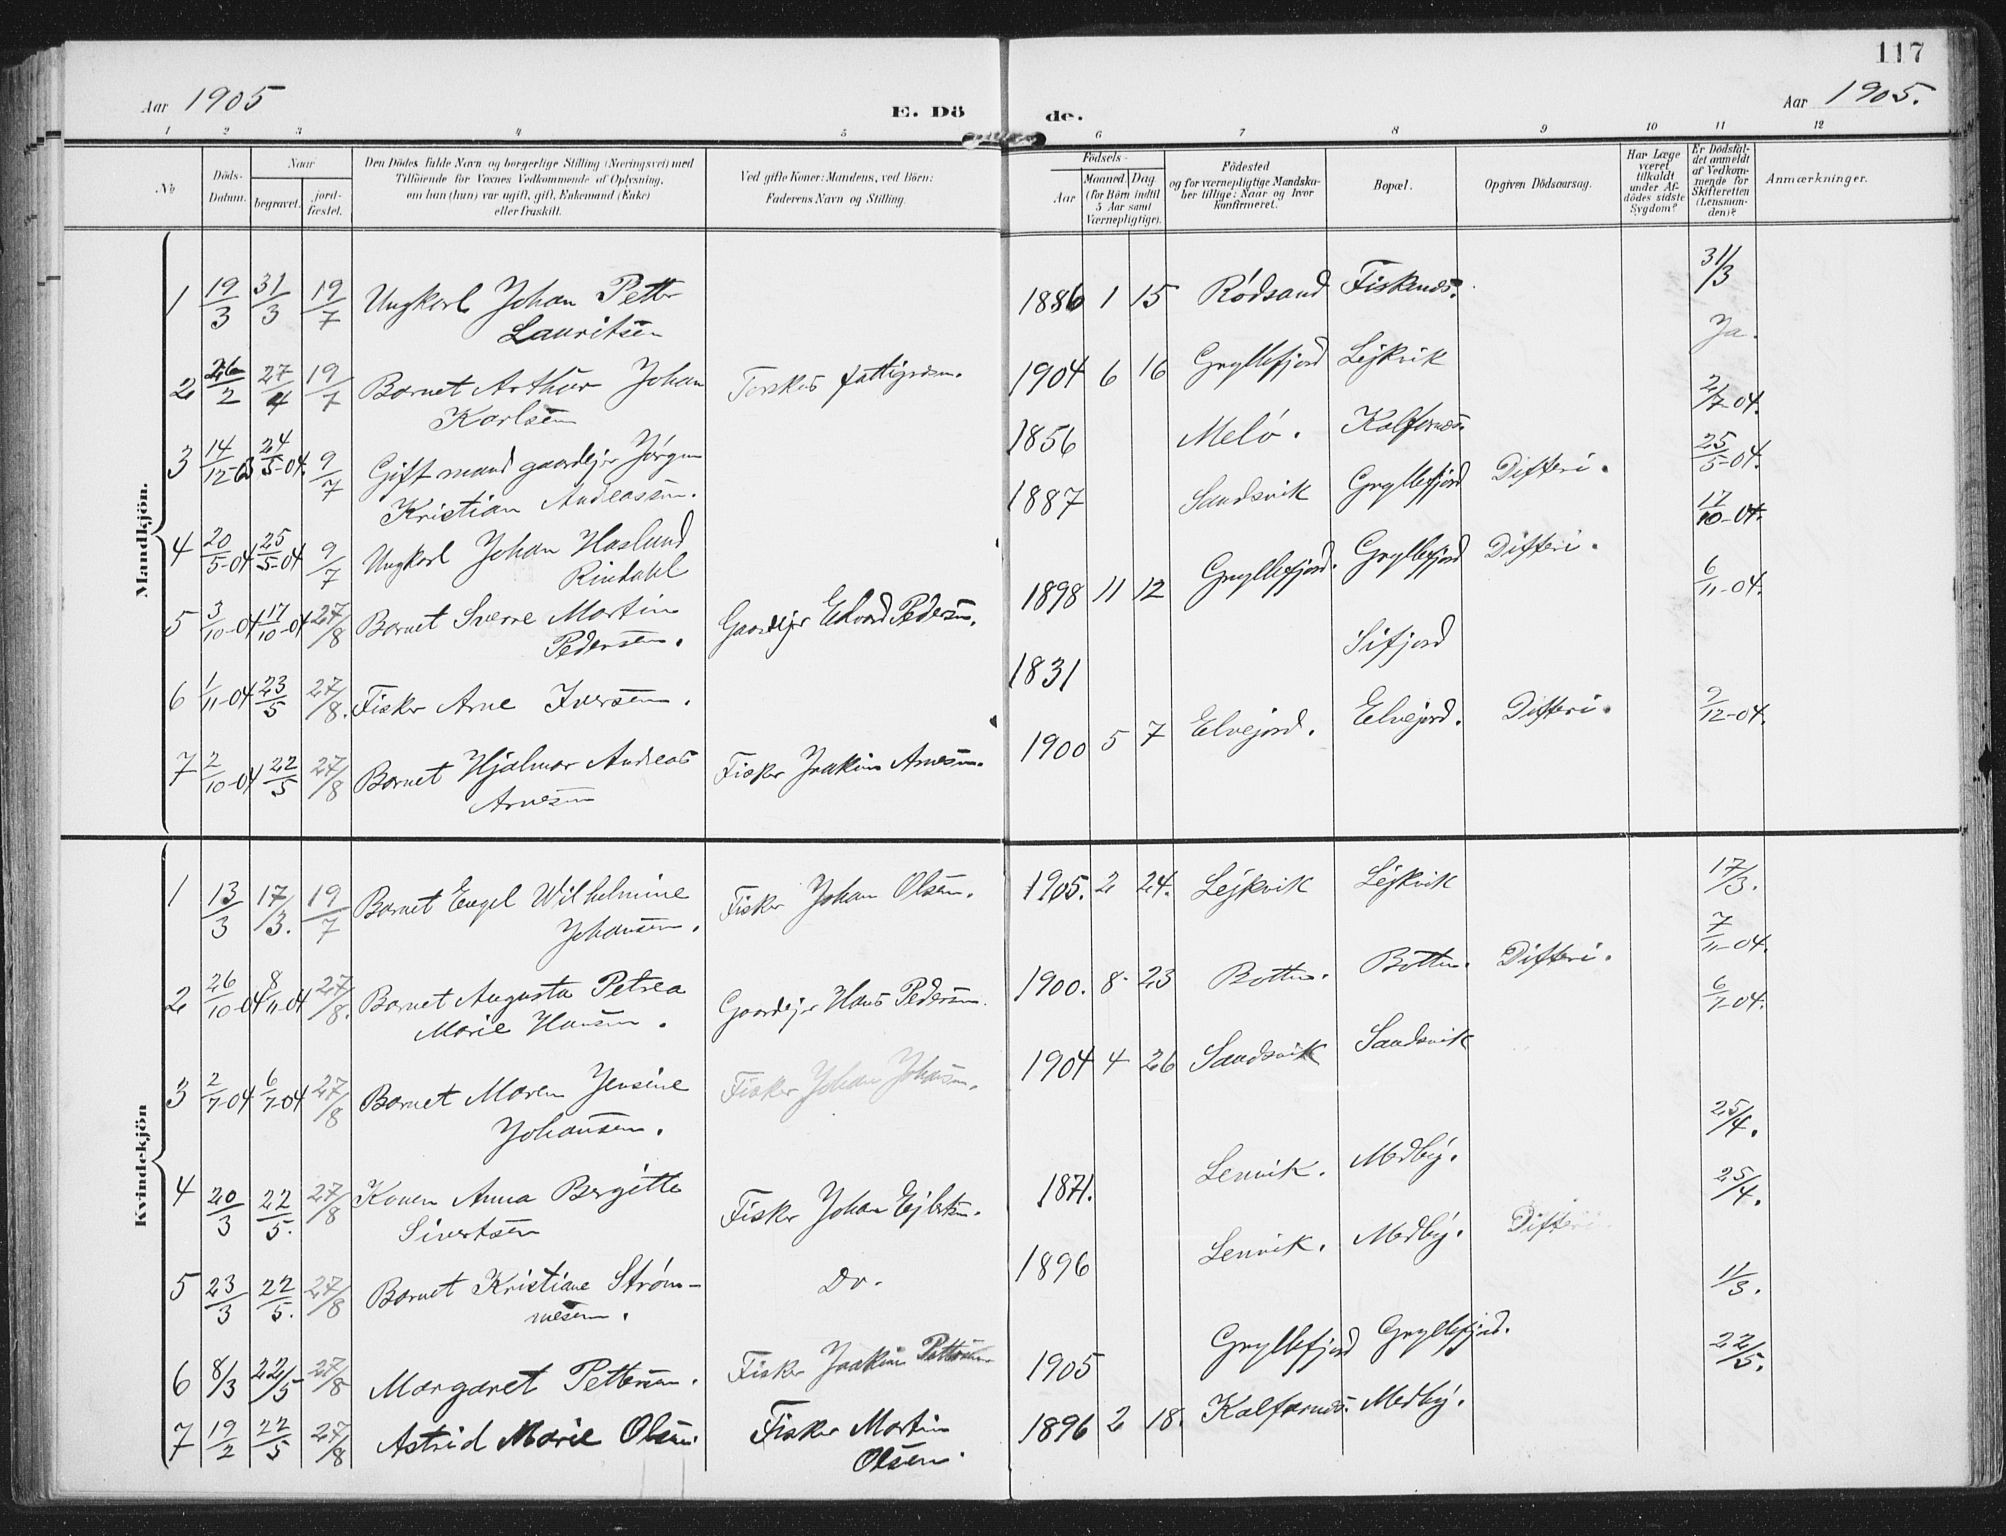 117
Aar 1905
E. Dö
de.
Aar 1905.
1 2 3 4 5 6 7 8 9 10 11 12
No
Döds-
Datum.
Naar
begravet.
jord-
fæstet.
Den Dödes fulde Navn og borgerlige Stilling (Næringsvei) med
Tilföiende for Voxnes Vedkommende af Oplysning,
om han (hun) var ugift, gift, Enkemand (Enke)
eller fraskilt.
Ved gifte Koner: Mandens, ved Börn:
Faderens Navn og Stilling.
Födsels-
Aar
Maaned. Dag
(for Börn indtil
5 Aar samt
Værnepligtige).
Födested
og for værnepligtige Mandska-
ber tillige: Naar og hvor
konfirmeret.
Bopæl.
Opgiven Dödsaarsag.
Har Læge
været
tilkaldt
under Af-
dödes sidste
Sygdom?
Er Dödsfal-
det anmeldt
af Vedkom-
mende for
Skifteretten
(Lensman-
den)?
Anmærkninger.
Mandkjön.
1 19/3 31/3 19/7 Ungkarl Johan Petter 1886 1 15 Rødsand Fiskenes. 31/3
Lauritsen
Ja.
2 26/2 27/4 19/7 Barnet Arthur Johan Torskes fattigvæsen. 1904 6 16 Gryllefjord Lejkvik
Karlsen
2/7-04.
3 14/12- 24/5-04. 9/7 Gift mand gaardejer Jørgen 1856 Melø. Kalfarnes. 25/5-04.
Kristian Andreassen.
4 20/5-04 25/5-04 9/7 Ungkarl Johan Haslund 1887 Sandsvik Gryllefjord Difteri. 17/10-04.
Rindahl
5 3/10-04 17/10-04 27/8 Barnet Sverre Martin Gaardejer Edvard Pedersen. 1898 11 12 Gryllefjord. Gryllefjord Difteri. 6/11-04.
Pedersen.
6 1/11-04 23/5 27/8. Fisker Arne Iversen. 1831 Sifjord
7 2/10-04 22/5 27/8 Barnet Hjalmar Andreas Fisker Joakim Arnesen. 1900 5 7 Elvejord. Elvejord. Difteri. 2/12-04.
Arnesen
Kvindekjön
1 13/3 17/3. 19/7 Barnet Engel Wilhelmine Fisker Johan Olsen. 1905. 2 24. Lejkvik Lejkvik 17/3.
Johansen.
2 26/10-04 8/11-04 27/8. Barnet Augusta Petrea Gaardejer Hans Pedersen. 1900. 8. 23 Botten. Botten. Difteri. 7/11-04.
Marie Hansen.
3 2/7-04 6/7-04 27/8 Barnet Maren Jensine Fisker Johan Johansen. 1904 4 26 Sandsvik Sandsvik 6/7-04.
Johansen.
4 20/3 22/5. 27/8 Konen Anna Bergitte Fisker Johan Ejlertsen. 1871. Lenvik. Medby. 25/4.
Sivertsen
5 23/3 22/5. 27/8 Barnet Kristiane Strøm- Do. 1896 Lenvik. Medby. Difteri. 25/4.
mesen.
6 8/3 22/5 27/8 Margaret Pettersen. Fisker Joakim Pettersen 1905 Gryllefjord Gryllefjord. 11/3.
7 19/2 22/5 27/8 Astrid Marie Olsen. Fisker Martin 1896 2 18. Kalfarnes. Medby. 22/5.
Olsen.